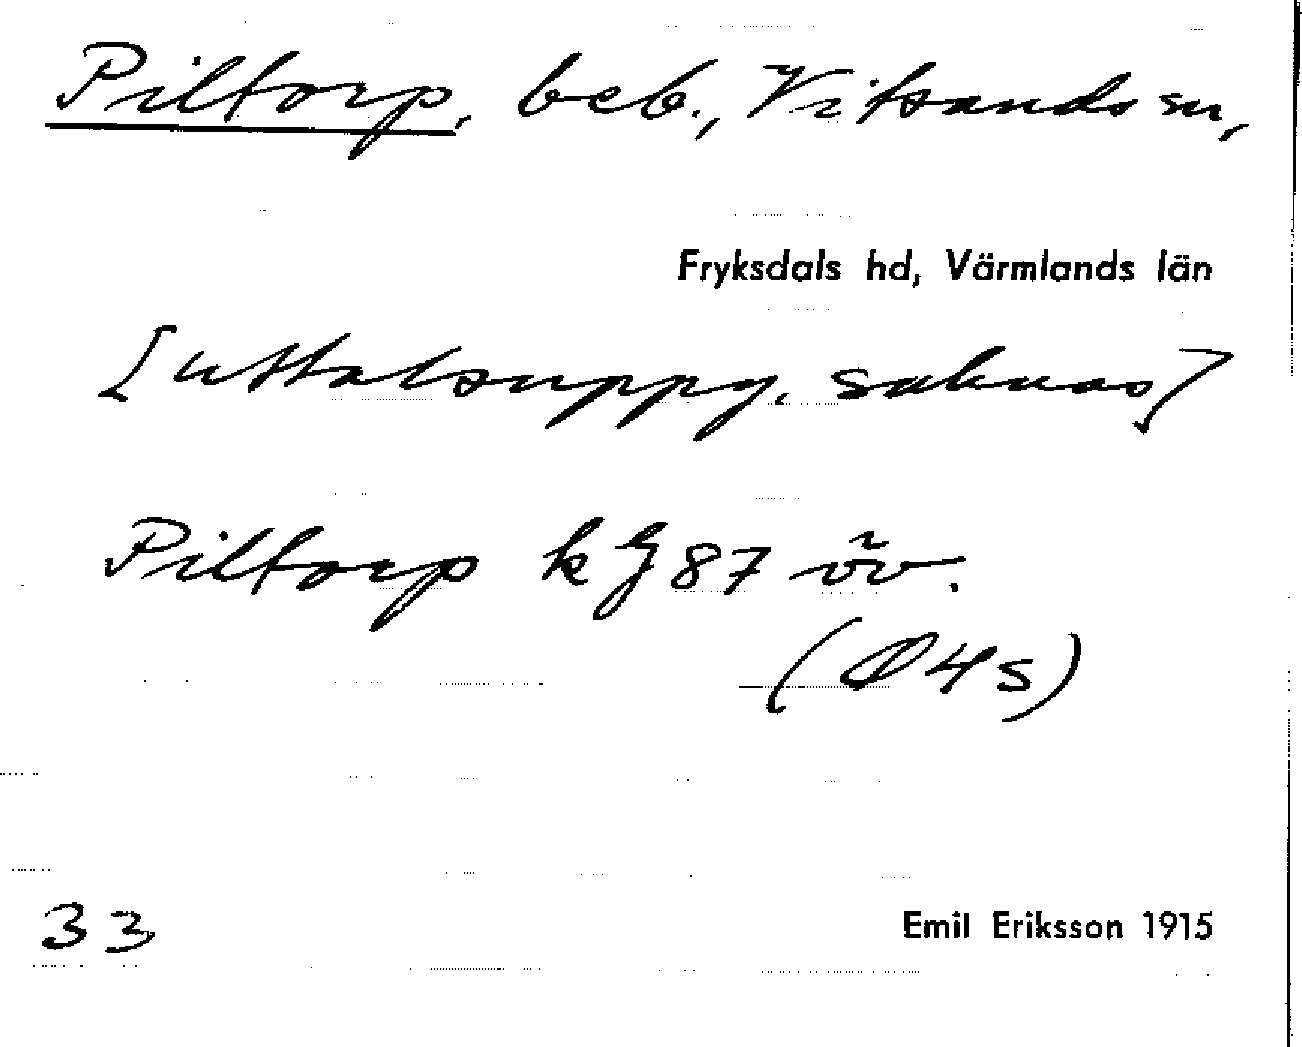 Piltorp, beb., Vitsands sn,
Fryksdals hd, Värmlands län
[uttalsuppg. saknas]
Piltorp k J 87 öv.
(Ø 4 s)
33
Emil Eriksson 1915